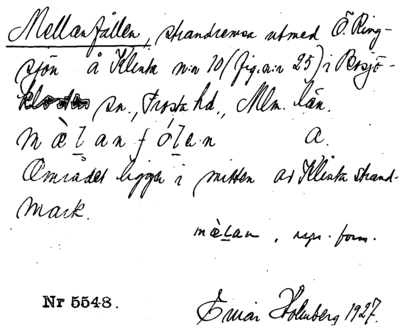 Mellanfållen, strandremsa utmed Ö. Ring-
sjön å Klinta n:n 10 (fig. a:n 25) i Bosjö-
kloster sn., Frosta hd., Mlm. län.
mèlanfólan a.
Området ligger i mitten av Klinta strand-
mark.
mèlan, rspr. form.
Nr 5548.
Einar Holmberg 1927.